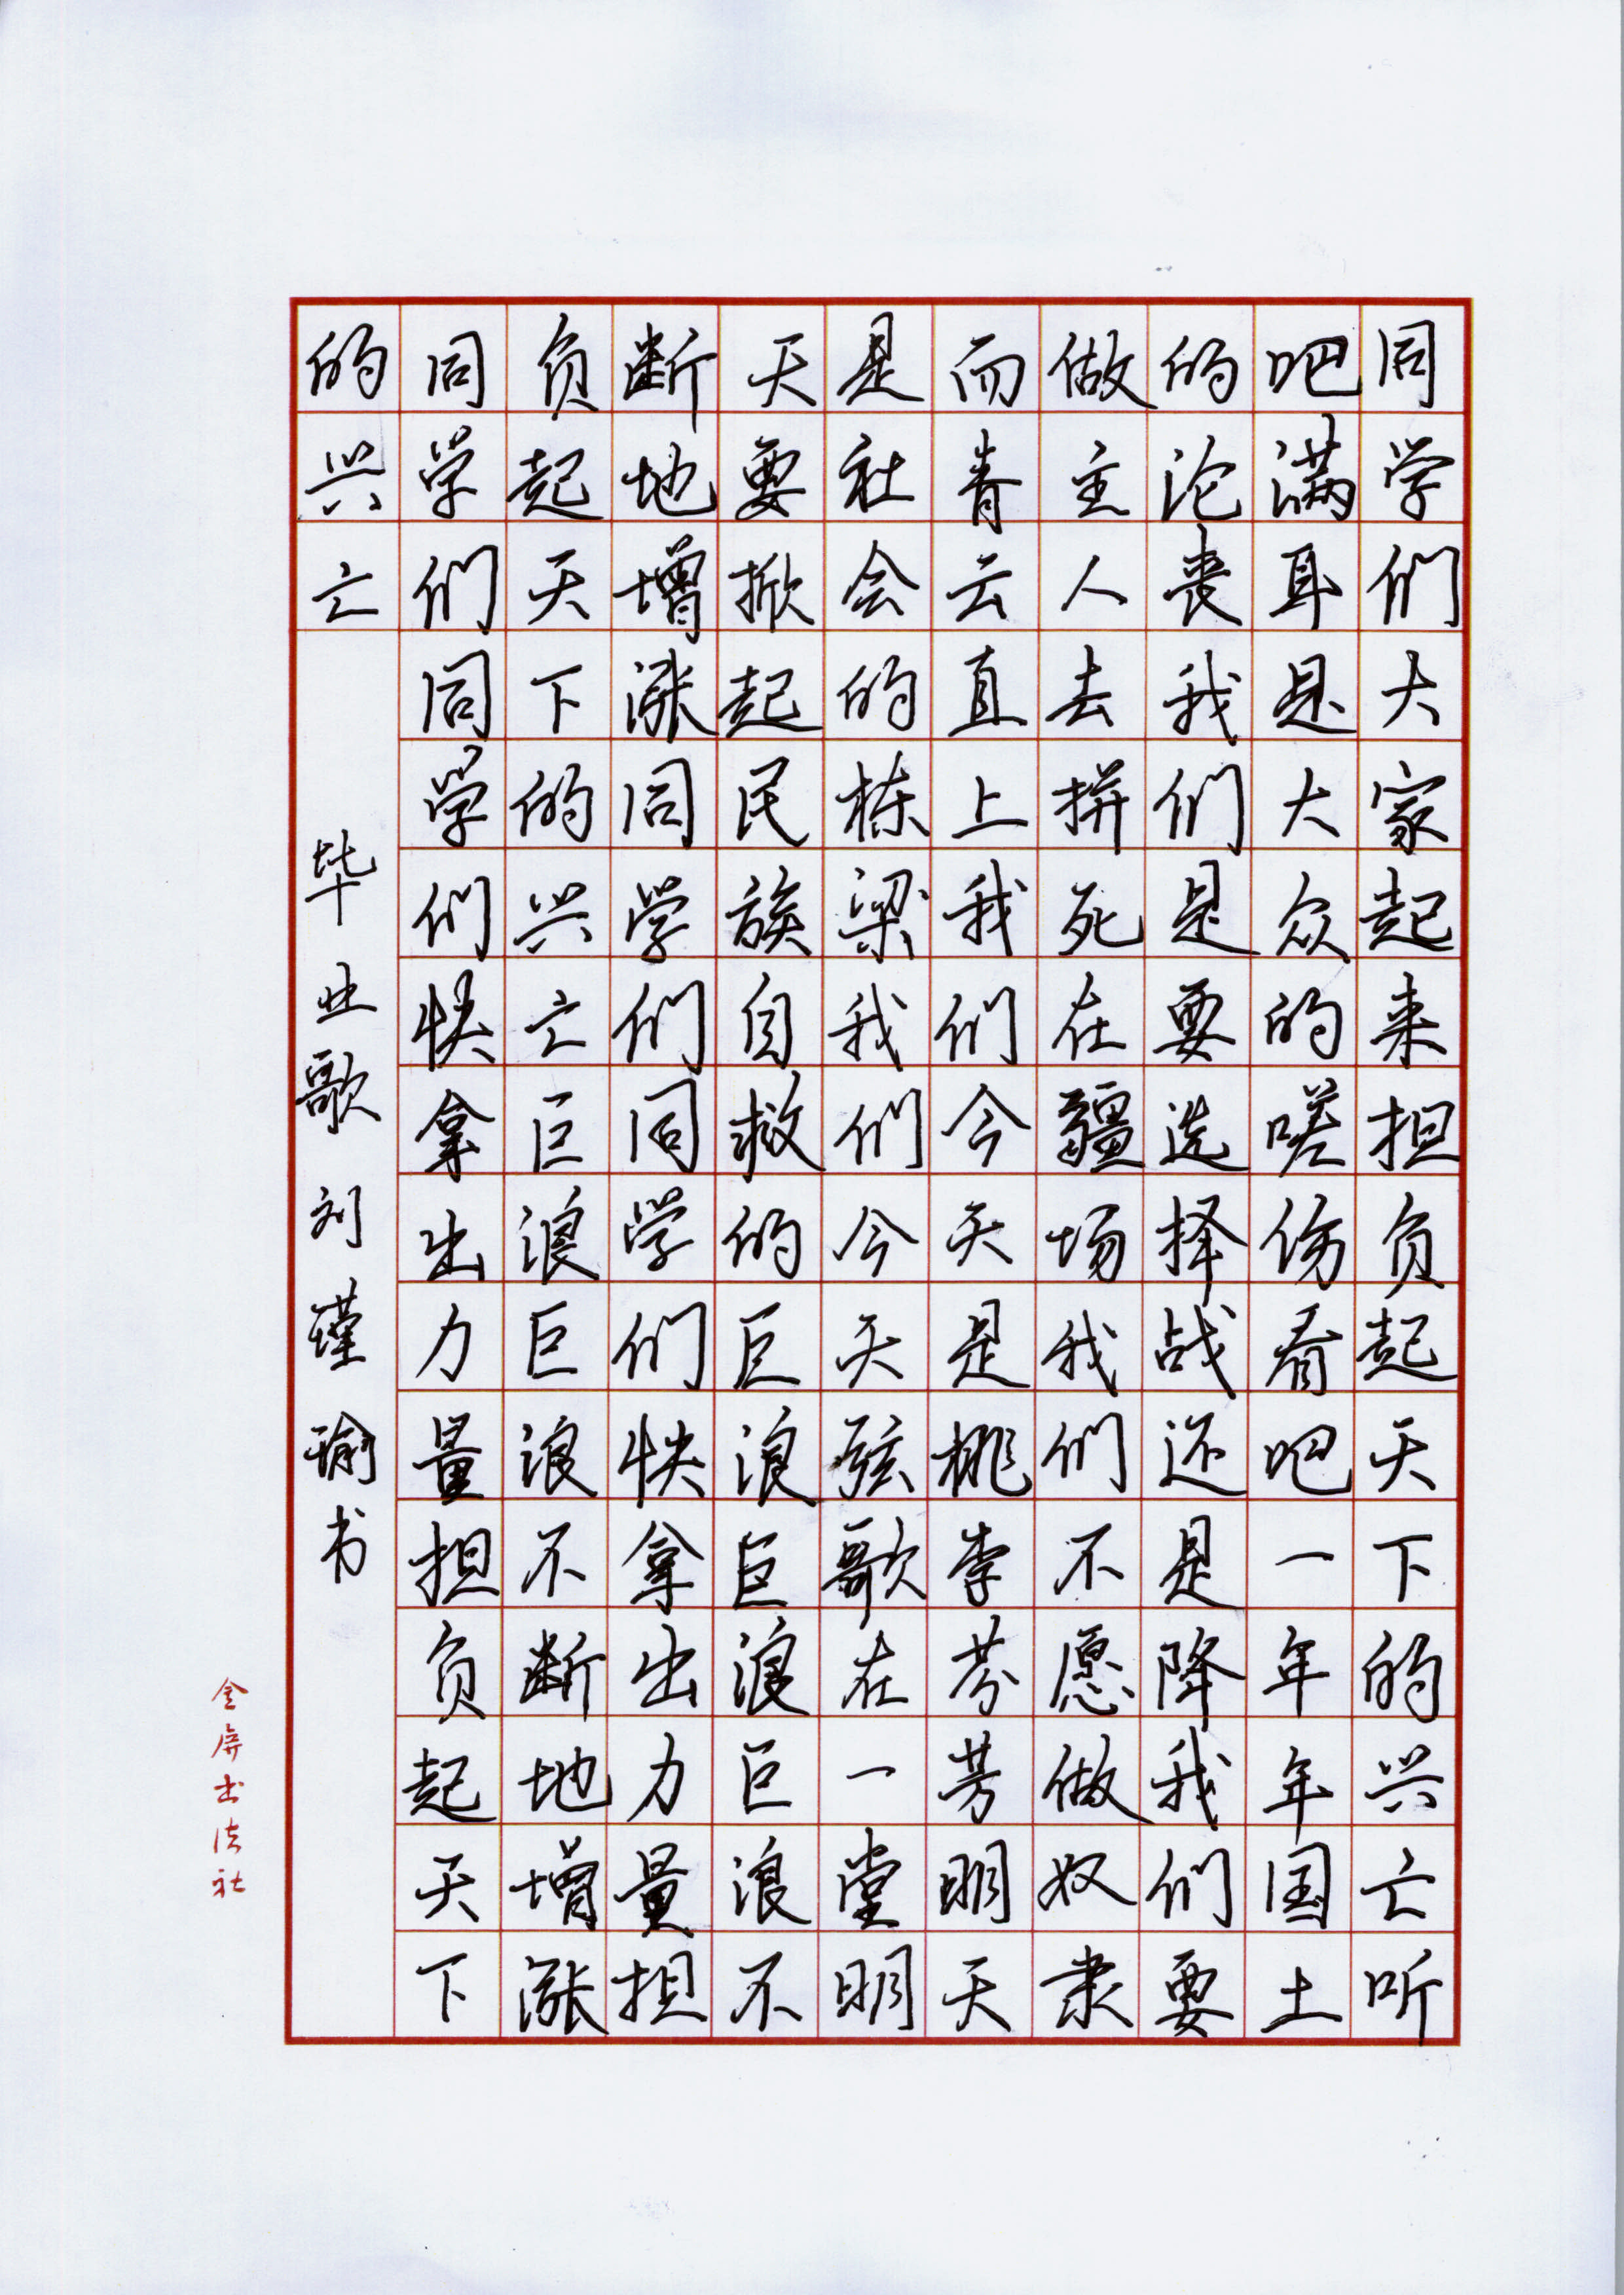 同学们大家起来担负起天下的兴亡听
吧满耳是大众的嗟伤看吧一年年国土
的沦丧我们是要选择战还是降我们要
做主人去拼死在疆场我们不愿做奴隶
而青云直上我们今天是桃李芬芳明天
是社会的栋梁我们今天弦歌在一堂明
天要掀起民族自救的巨浪巨浪巨浪不
断地增涨同学们同学们快拿出力量担
负起天下的兴亡巨浪巨浪不断地增涨
同学们同学们快拿出力量担负起天下
的兴亡
毕业歌 刘瑾瑜书
金屏书法社